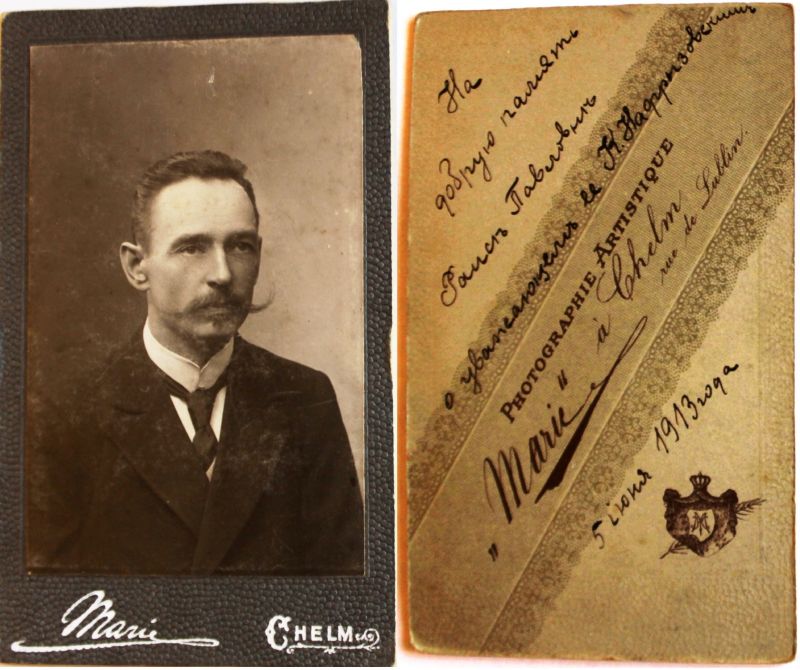 Marie
CHELM
На
добрую память
Раисѣ Павловнѣ
о уважающемъ ее К.
PHOTOGRAPHIE ARTISTIQUE
„Marie“ à Chelm
rue de Lublin.
5 іюня 1913 года
M